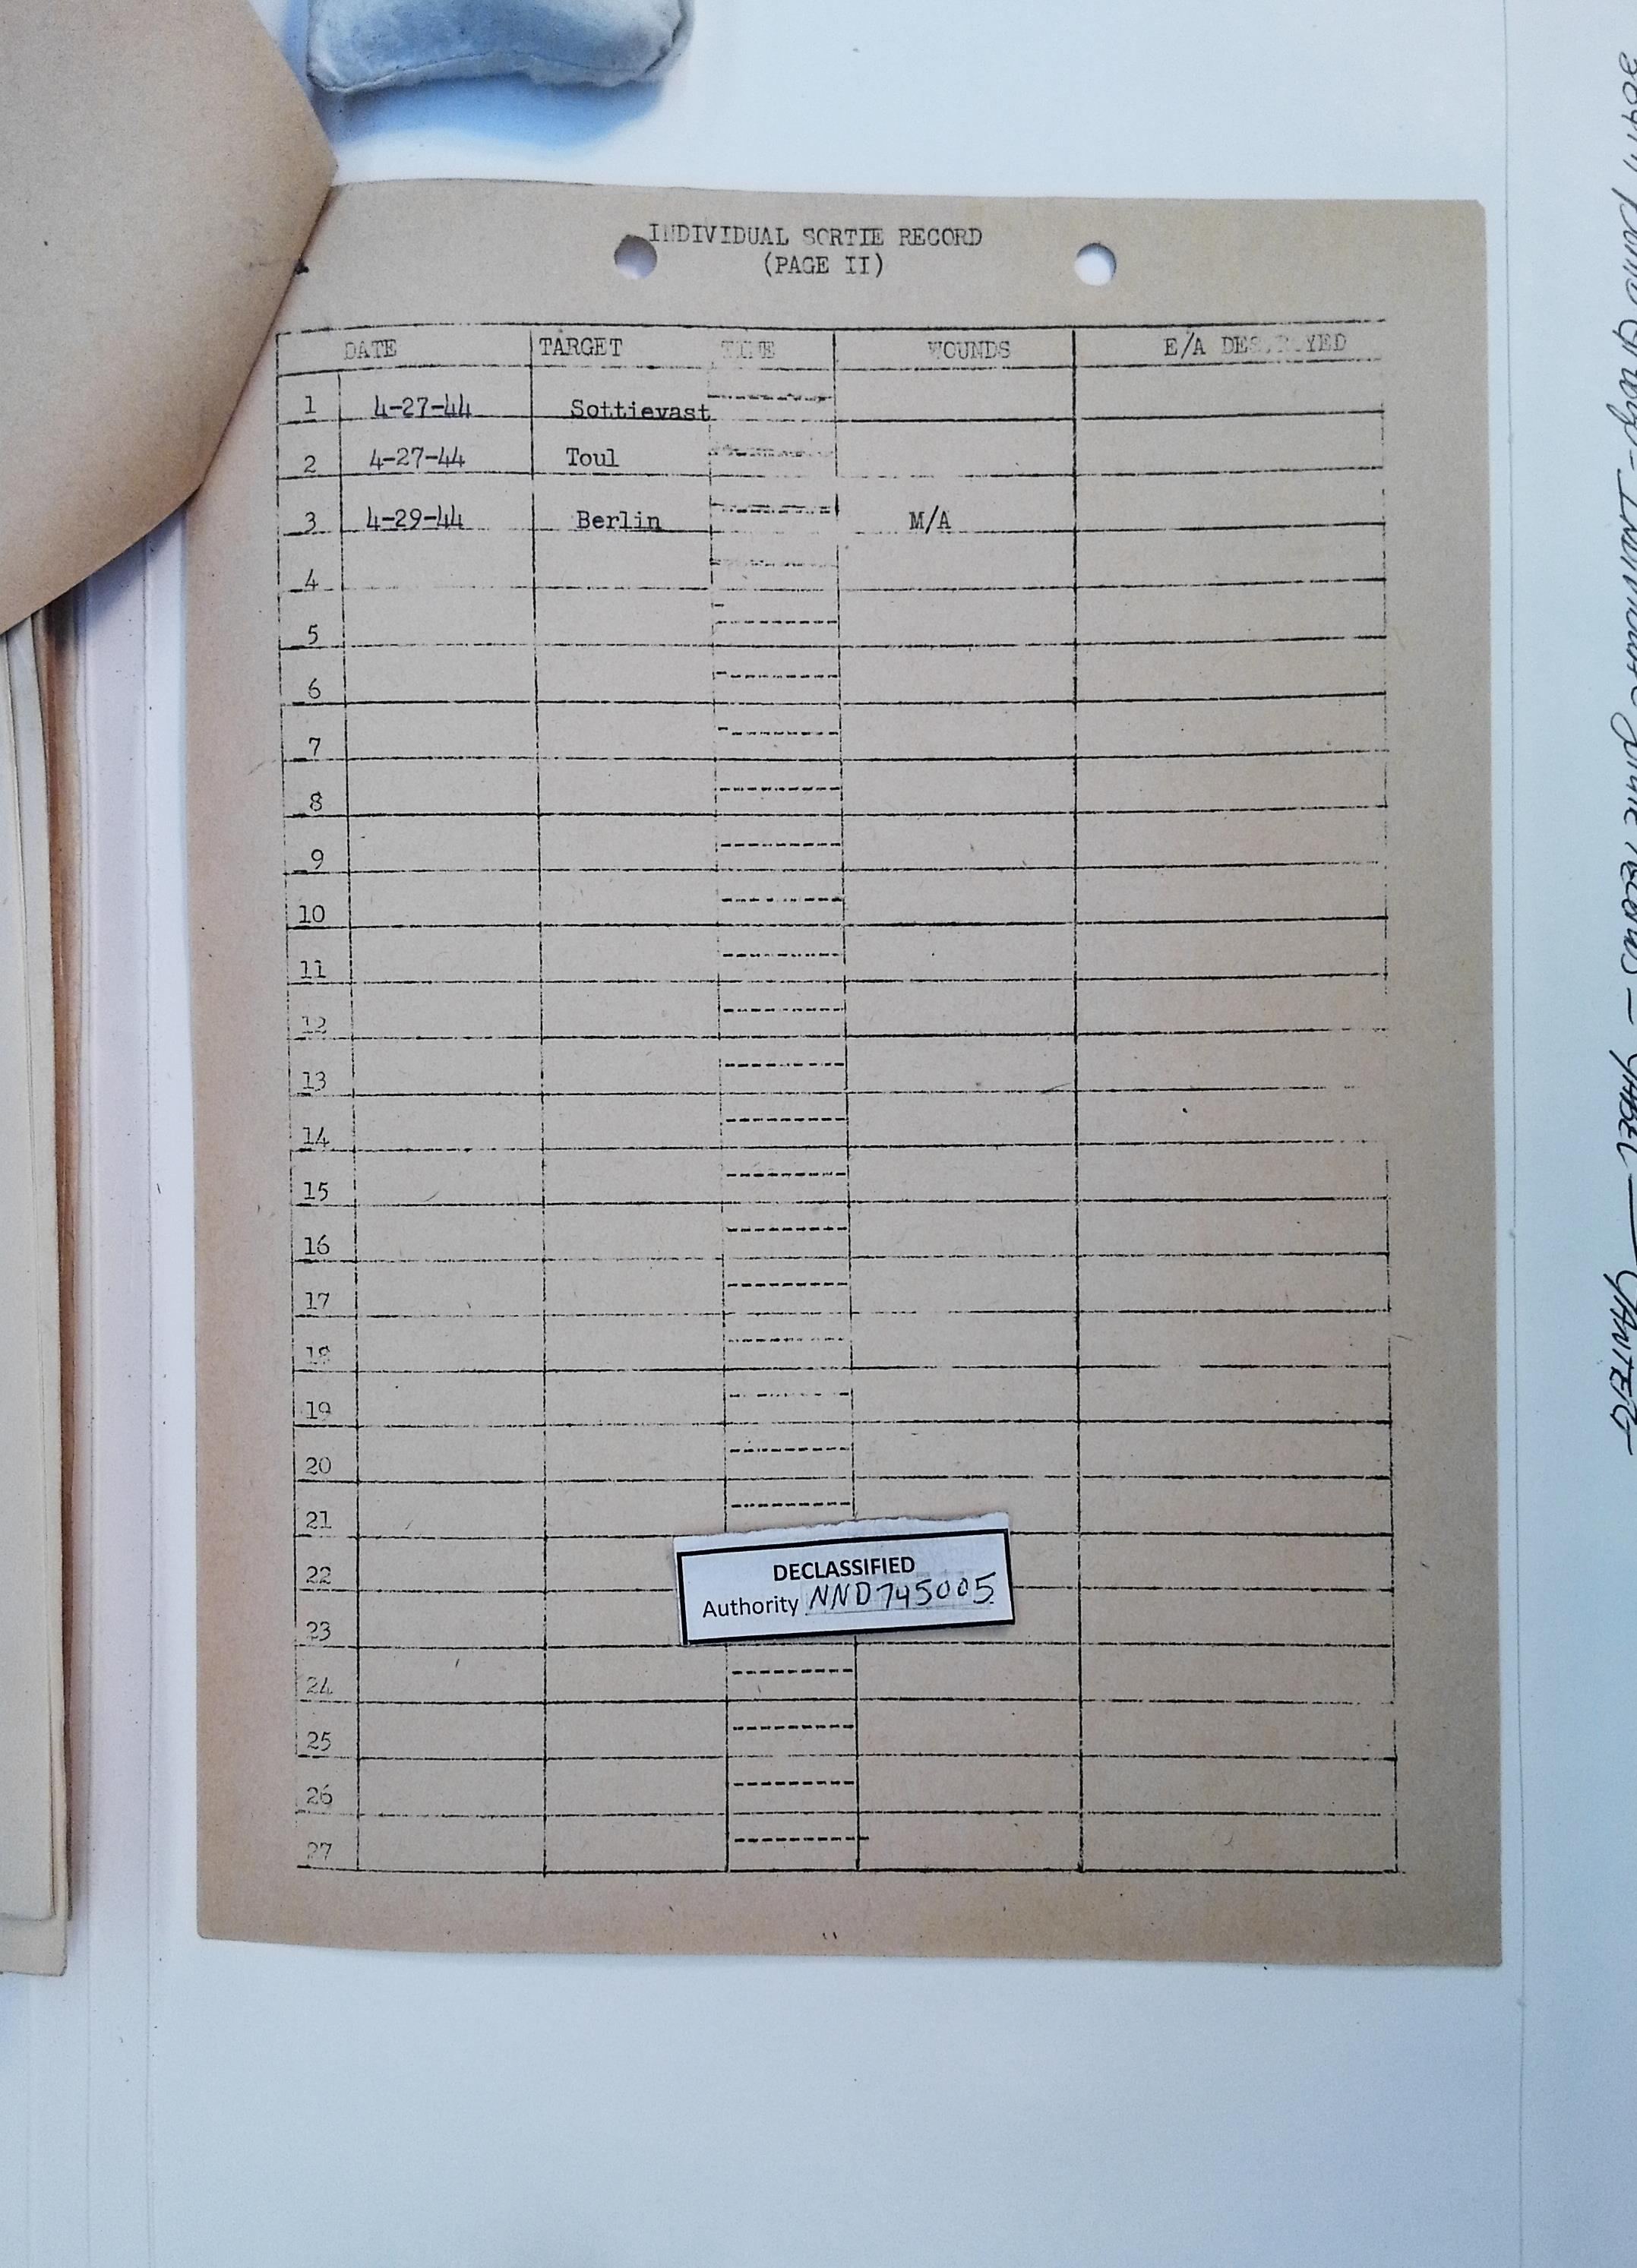 INDIVIDUAL SORTIE RECORD
(PAGE II)
DATE TARGET TIME WOUNDS E/A DESTROYED
1 4-27-44 Sottievast
2 4-27-44 Toul
3 4-29-44 Berlin M/A
4
5
6
7
8
9
10
11
12
13
14
15
16
17
18
19
20
21
22
23
24
25
26
27
DECLASSIFIED
Authority NND 745005
Bomb Group - Individual Sortie Records -